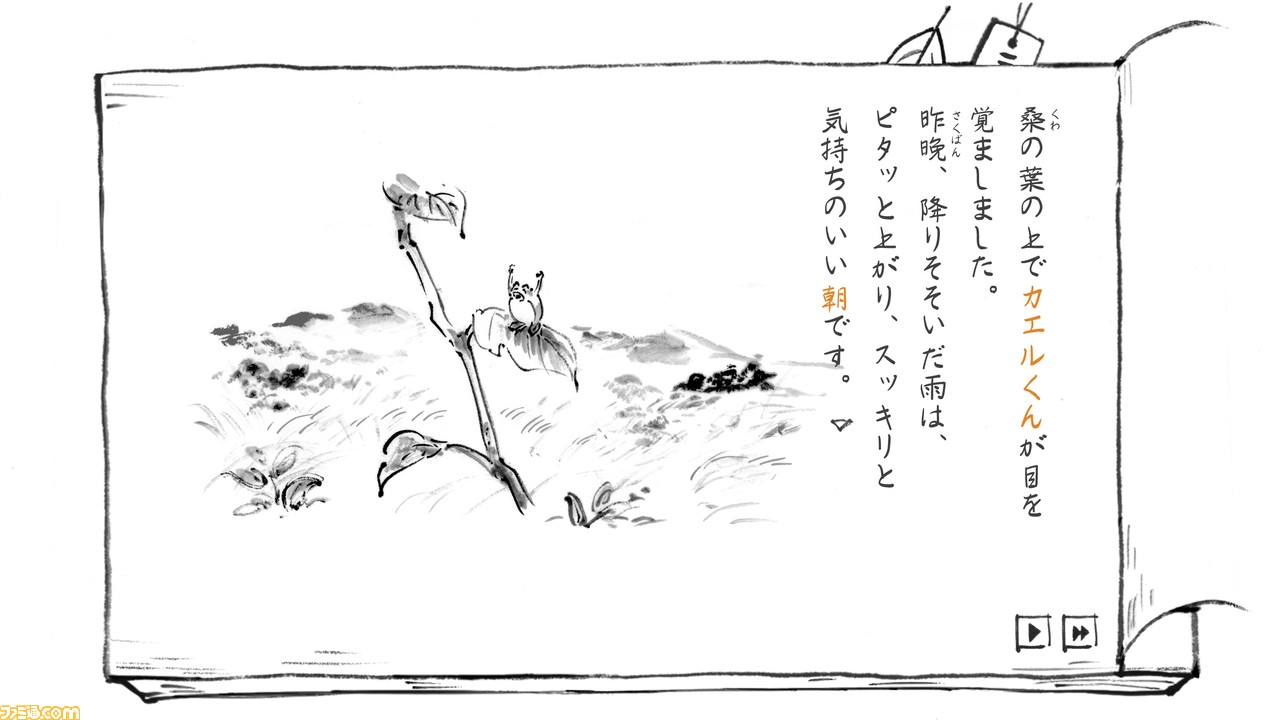 桑の葉の上でカエルくんが目を
覚ましました。
昨晩、降りそそいだ雨は、
ピタッと上がり、スッキリと
気持ちのいい朝です。
くわ
さくばん
ファミ通com